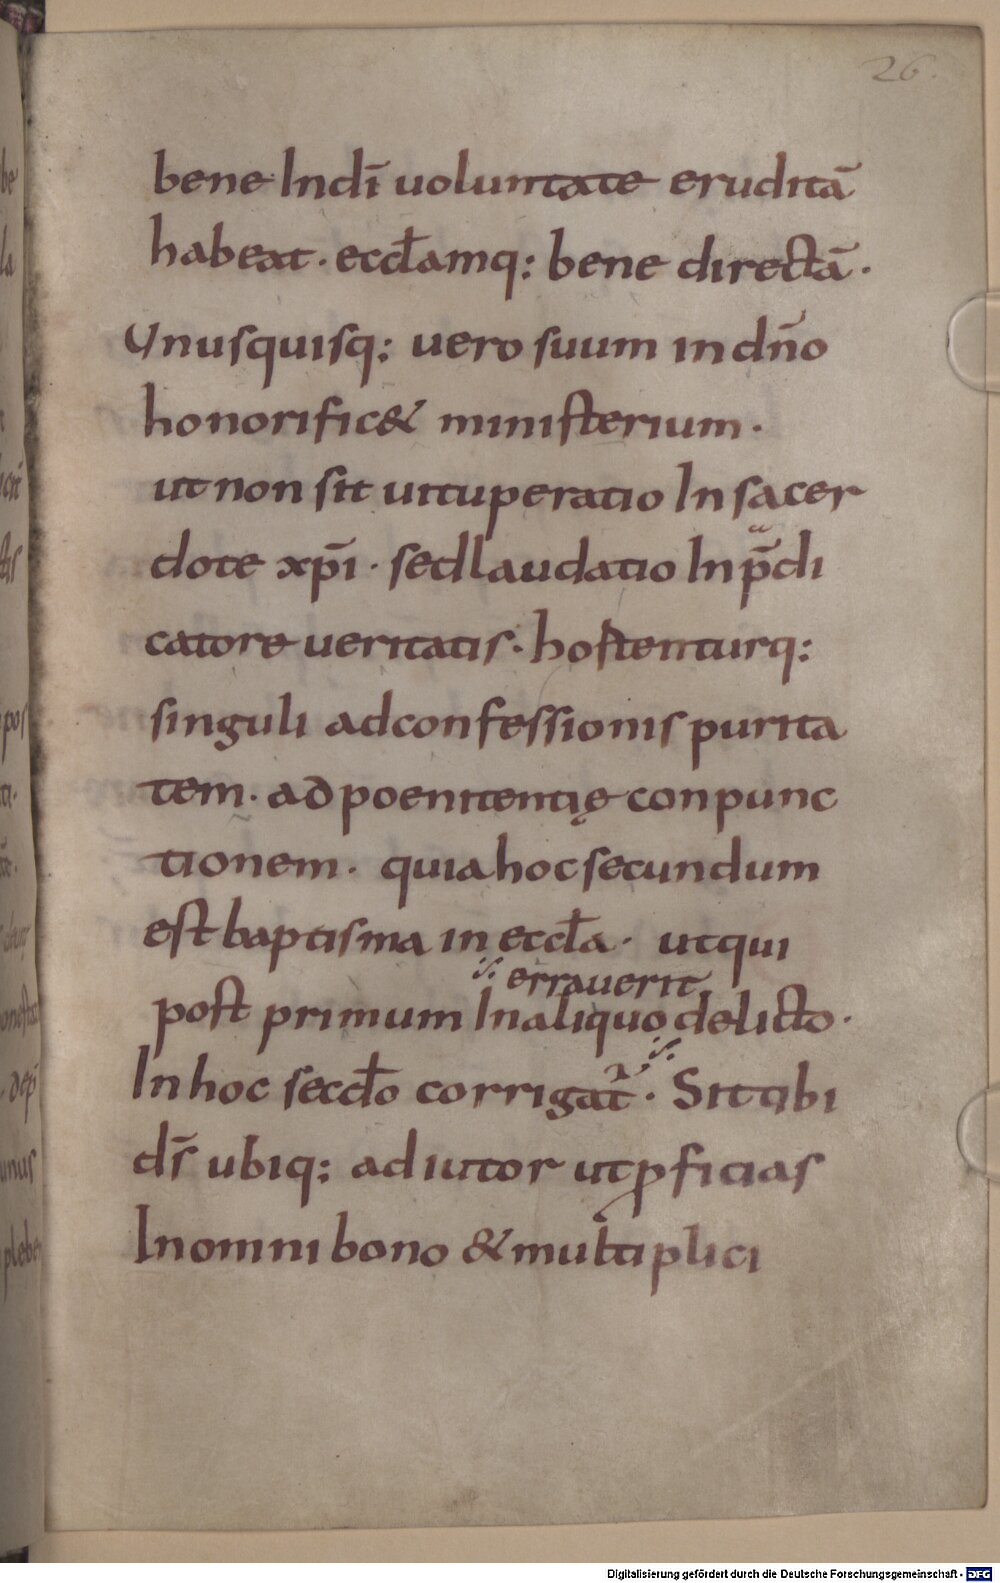 26.
bene In dī uoluntate eruditā
habeat · eccl̄amq: bene directā ·
Unusquisq: uero suum in dn̄o
honorific& ministerium ·
ut non sit uituperatio In sacer
dote xp̄i · sed laudatio In p̄di
catore ueritatis · hostenturq:
singuli ad confessionis purita
tem · ad poenitentię conpunc
tionem · quia hoc secundum
est baptisma in eccl̄a · ut qui
errauerit
post primum In aliquo delicto ·
In hoc secd̄o corrigat̄ · Sit tibi
ds̄ ubiq: adiutor ut ꝓficias
In omni bono & multiplici
Digitalisierung gefördert durch die Deutsche Forschungsgemeinschaft - DFG